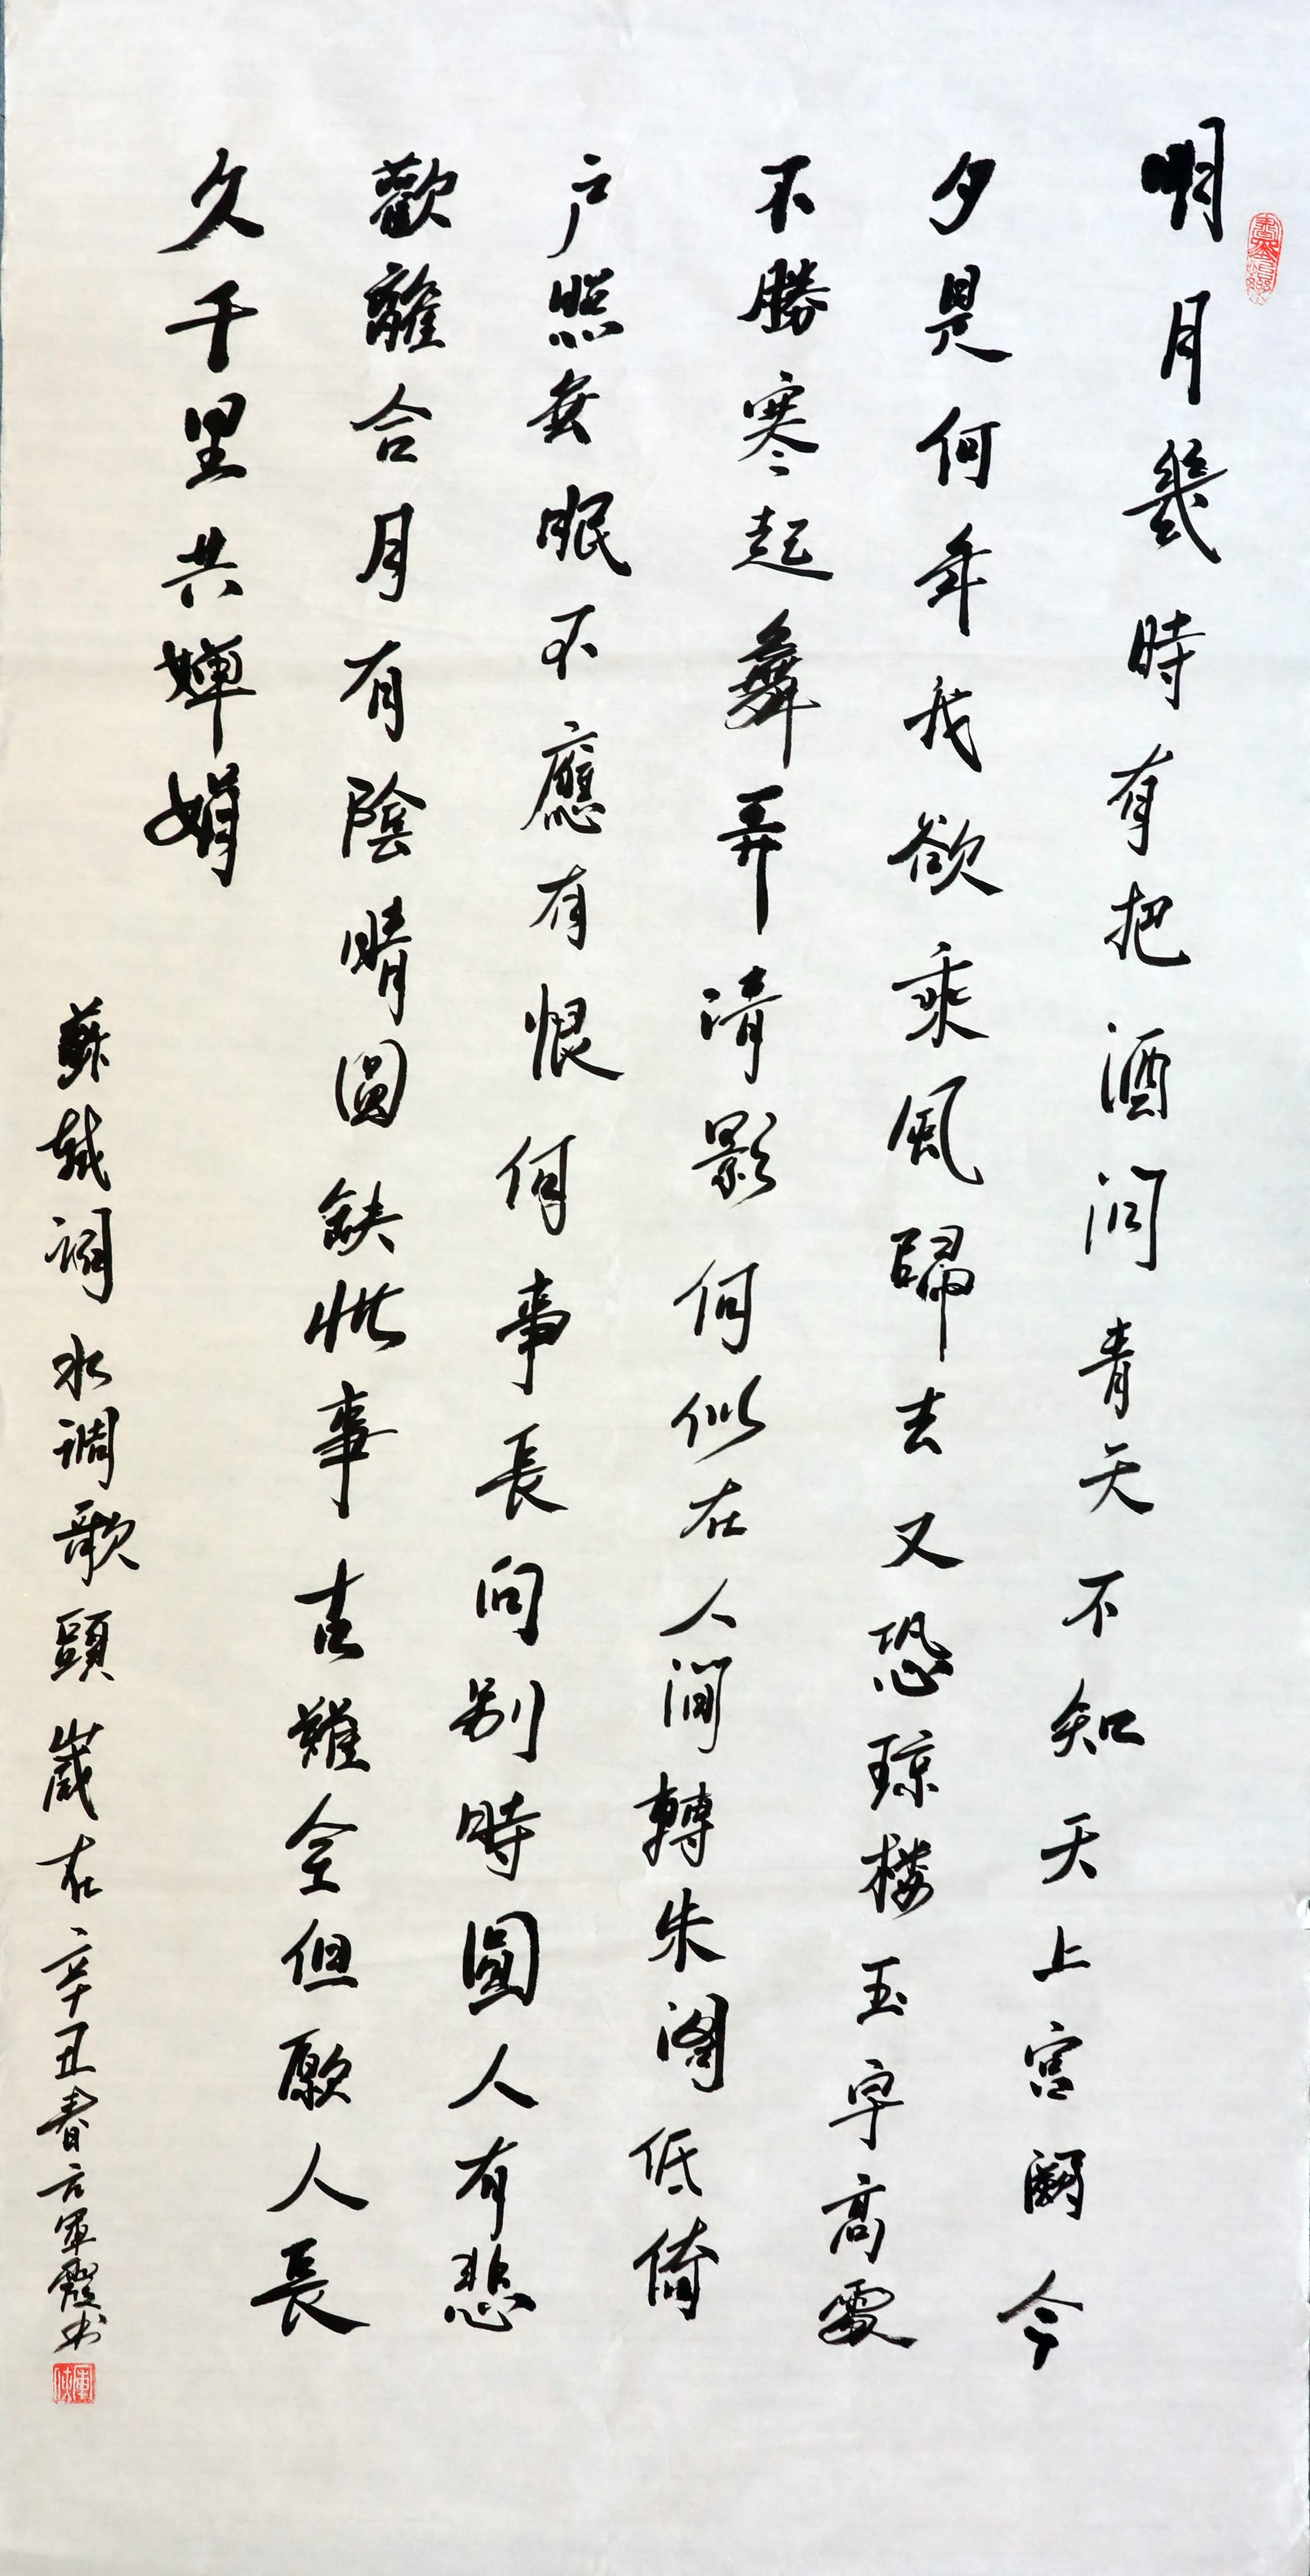 明月幾時有把酒問青天不知天上宫闕今
夕是何年我欲乘風歸去又恐琼楼玉宇高處
不勝寒起舞弄清影何似在人間轉朱阁低倚
户照無眠不應有恨何事長向别時圓人有悲
歡離合月有陰晴圓缺此事古難全但願人長
久千里共嬋娟
蘇軾詞水調歌頭歲在辛丑春方軍霞书